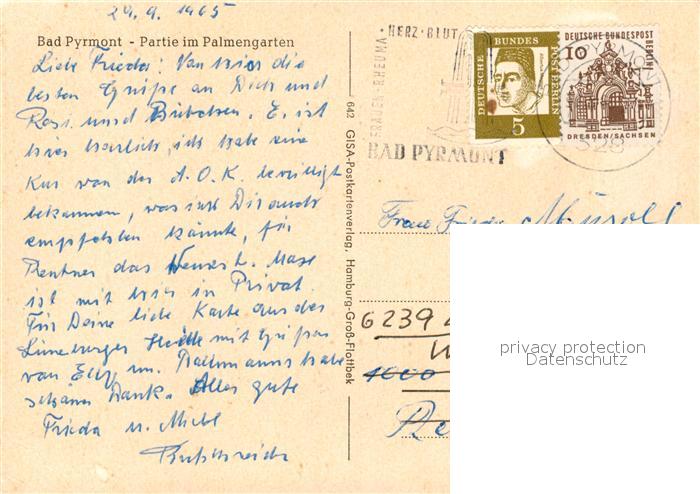 29.9.1965
Bad Pyrmont - Partie im Palmengarten
Liebe Frieda! Von hier die
besten Grüße an Dich und
und Bübchen. E. ist
hier herrlich, ich habe eine
Kur von der A.O.K. bewilligt
bekommen, was ich Dir auch
empfehlen könnte, für
Rentner das
ist mit hier in Privat.
Für Deine liebe Karte aus der
Lüneburger Heide mit Grüßen
von Elly u. habe
schönen Dank. Alles gute
Frieda u.
642 GISA-Postkartenverlag, Hamburg-Groß-Flottbek
HERZ · BLUT
FRAUEN · RHEUMA
BAD PYRMONT
DEUTSCHE BUNDES POST BERLIN
5
DEUTSCHE BUNDESPOST BERLIN
10
DRESDEN/SACHSEN
PYRMONT
328
Frau Frieda
6239
1000
privacy protection
Datenschutz